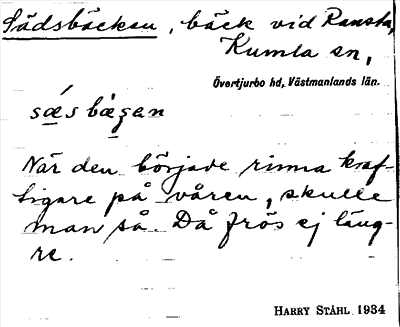 Sädsbäcken, bäck vid Ransta,
Kumla sn,
Övertjurbo hd, Västmanlands län.
När den började rinna kraf-
tigare på våren, skulle
man så. Då frös ej läng-
re.
HARRY STÅHL 1934